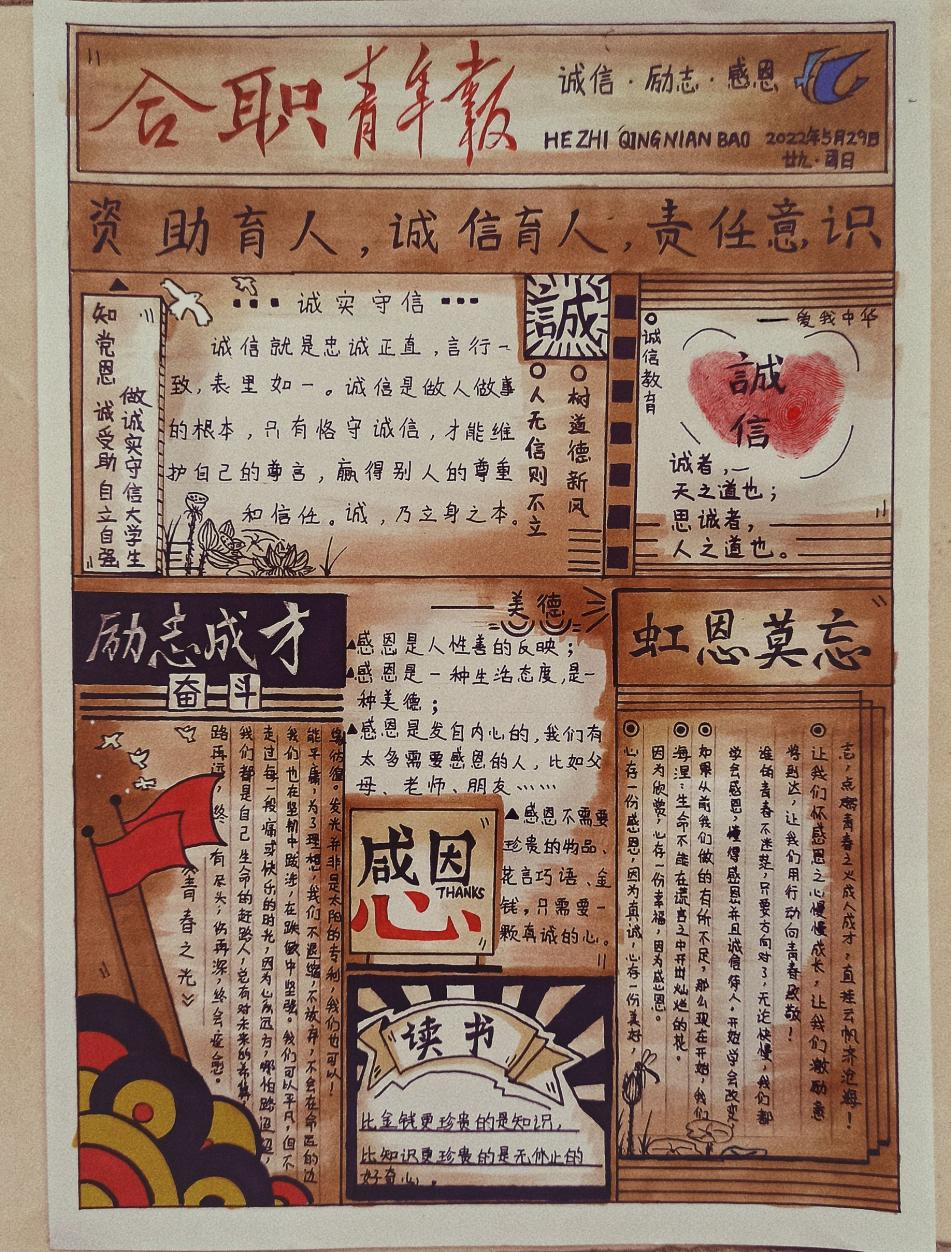 合职青年报
诚信·励志·感恩
HE ZHI QINGNIAN BAO
2022年5月29日
廿九·周日
资助育人,诚信育人,责任意识
知党恩 诚受助 自立自强
做诚实守信大学生
诚实守信
诚信就是忠诚正直,言行一
致,表里如一。诚信是做人做事
的根本,只有恪守诚信,才能维
护自己的尊言,赢得别人的尊重
和信任。诚,乃立身之本。
誠
树道德新风
人无信则不立
诚信教育
——爱我中华
誠
信
诚者,
天之道也;
思诚者,
人之道也。
励志成才
奋斗
身彷徨。发光并非是太阳的专利,我们也可以!
能平庸,为了理想,我们不退缩,不放弃,不会在命运的边
我们也在坚韧中跋涉,在跌破中坚强。我们可以平凡,但不
走过每一段痛或快乐的时光,因为心系远方,哪怕路迢迢,
我们都是自己生命的赶路人,总有对未来的希冀
路再远,终有尽头;伤再深,终会痊愈。
《青春之光》
——美德
感恩是人性善的反映;
感恩是一种生活态度,是一
种美德;
感恩是发自内心的,我们有
太多需要感恩的人,比如父
母、老师、朋友……
感恩不需要
珍贵的物品、
花言巧语、金
钱,只需要一
颗真诚的心。
感因
心
THANKS
读书
比金钱更珍贵的是知识,
比知识更珍贵的是无休止的
好奇心。
虹恩莫忘
志,点燃青春之火成人成才,直挂云帆济沧海!
让我们怀感恩之心慢慢成长,让我们激励意
将到达,让我们用行动向青春致敬!
谁的青春不迷茫,只要方向对了,无论快慢,我们都
学会感恩,懂得感恩并且诚信待人。开始学会改变,
如果从前我们做的有所不足,那么现在开始,我们
海涅:生命不能在谎言之中开出灿烂的花。
因为欣赏,心存一份幸福,因为感恩。
心存一份感恩,因为真诚,心存一份美好,